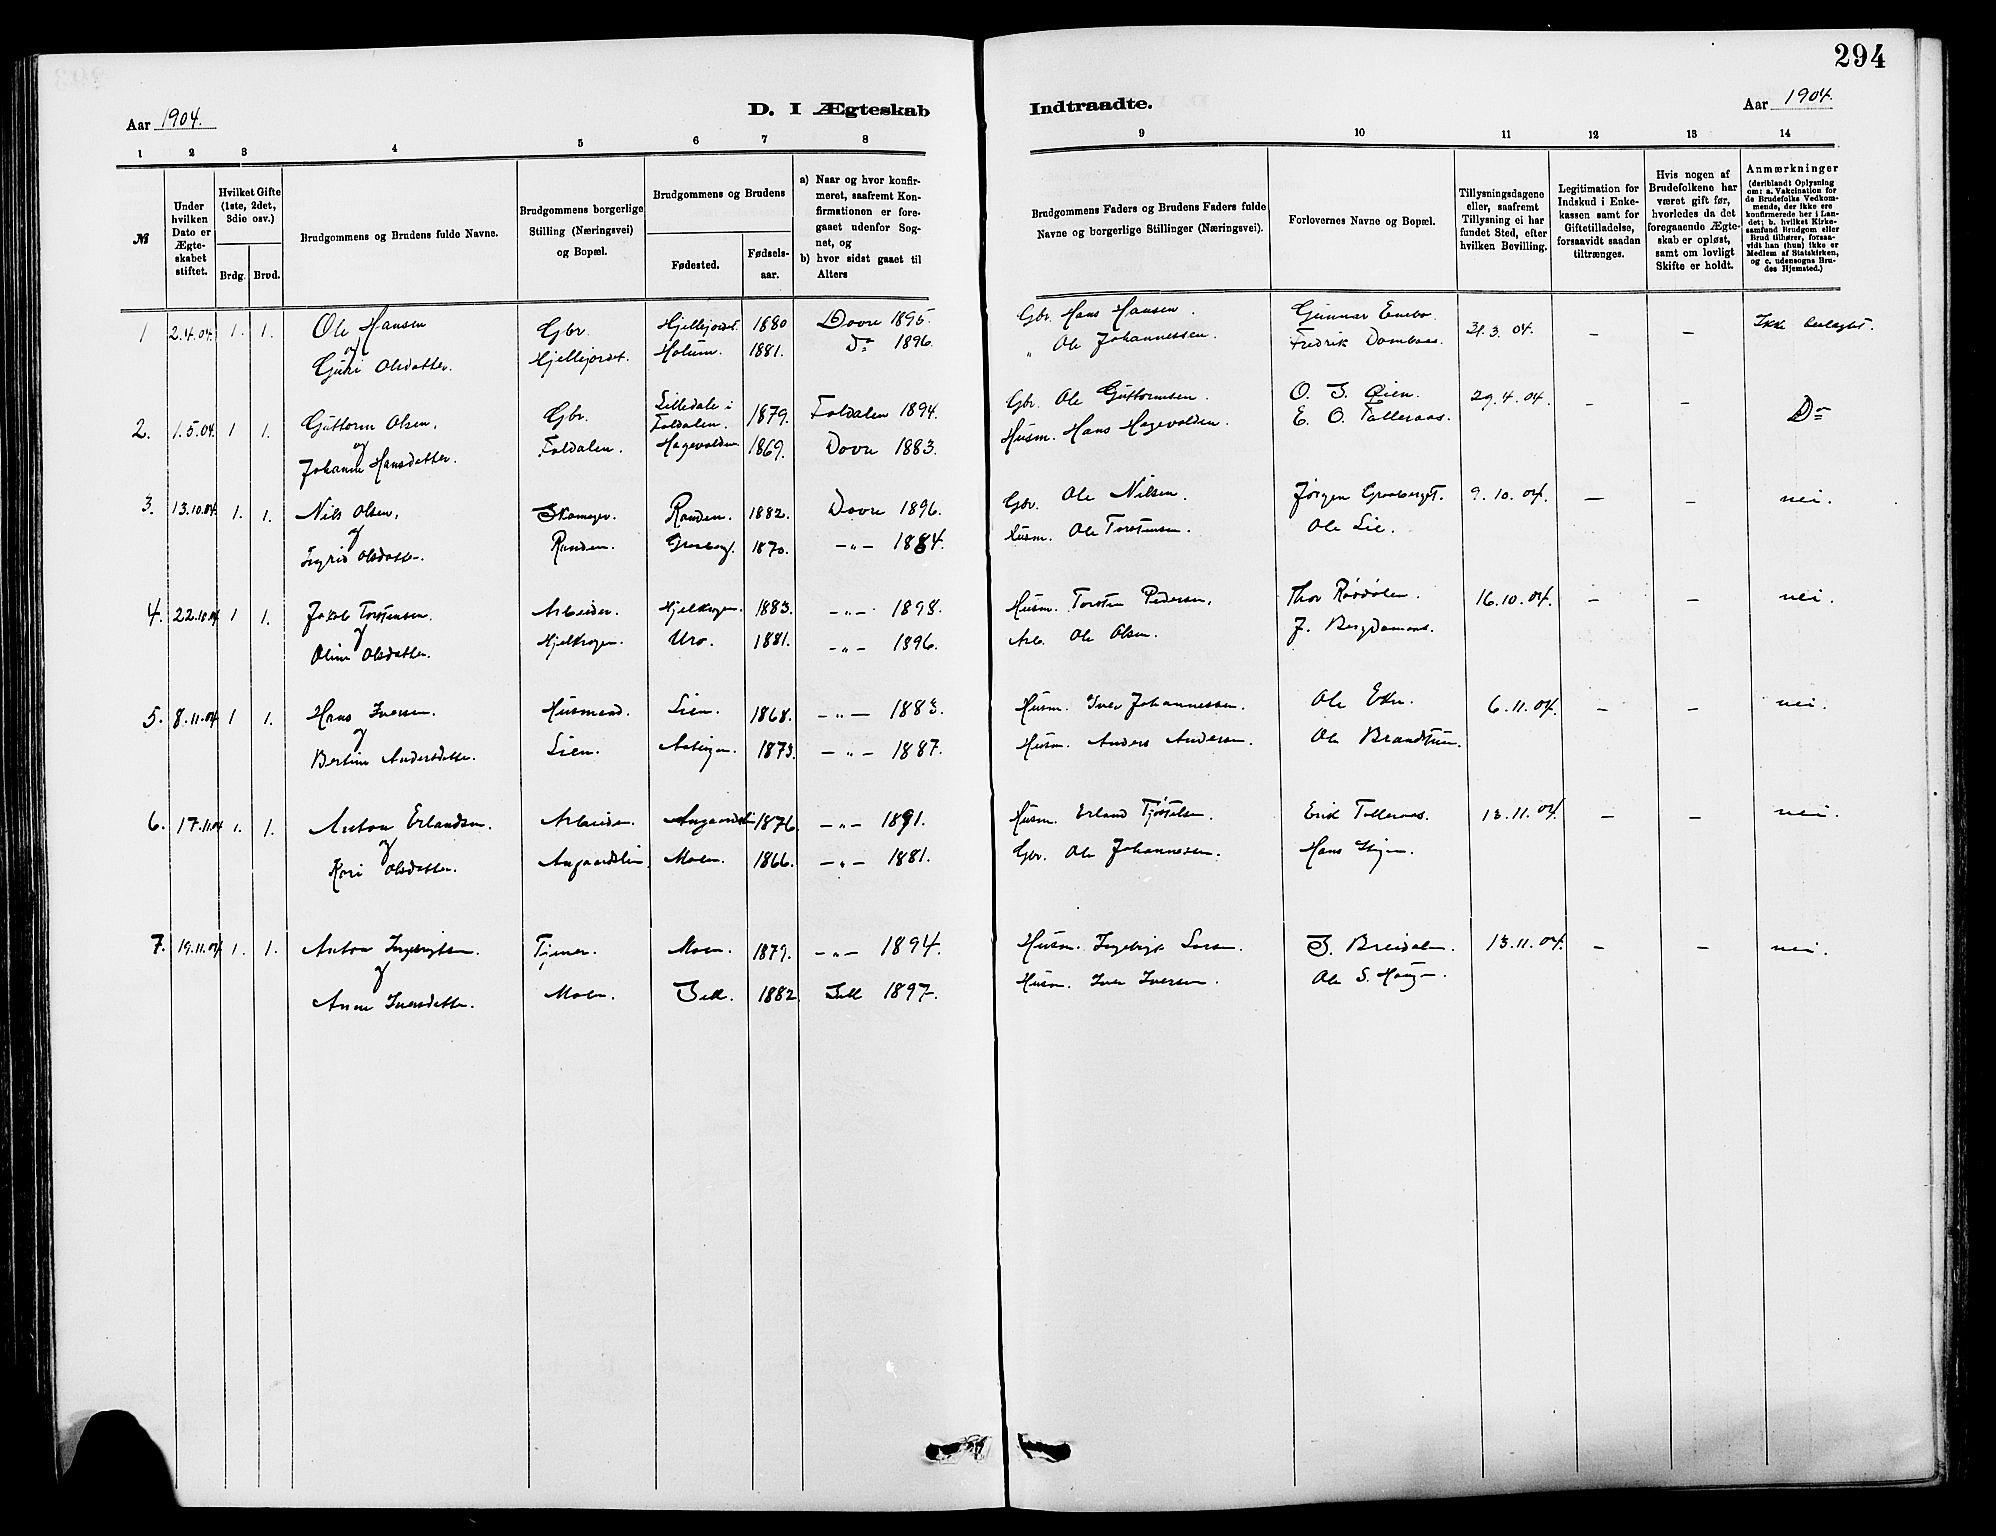 294
Aar 1904.
D. I Ægteskab
Indtraadte.
Aar 1904.
1 2 3 4 5 6 7 8 9 10 11 12 13 14
№
Under hvilken Dato er Ægteskabet stiftet.
Hvilket Gifte (1ste, 2det, 3die osv.)
Brdg. Brud.
Brudgommens og Brudens fulde Navne.
Brudgommens borgerlige Stilling (Næringsvei) og Bopæl.
Brudgommens og Brudens
Fødested.
Fødselsaar.
a) Naar og hvor konfirmeret, saafremt Konfirmationen er foregaaet udenfor Sognet, og
b) hvor sidst gaaet til Alters
Brudgommens Faders og Brudens Faders fulde Navne og borgerlige Stillinger (Næringsvei).
Forlovernes Navne og Bopæl.
Tillysningsdagene eller, saafremt Tillysning ei har fundet Sted, efter hvilken Bevilling.
Legitimation for Indskud i Enkekassen samt for Giftetilladelse, forsaavidt saadan tiltrænges.
Hvis nogen af Brudefolkene har været gift før, hvorledes da det foregaaende Ægteskab er opløst, samt om lovligt Skifte er holdt.
Anmærkninger (deriblandt Oplysning om: a. Vakcination for de Brudefolks Vedkommende, der ikke ere konfirmerede her i Landet; b. hvilket Kirkesamfund Brudgom eller Brud tilhører, forsaavidt han (hun) ikke er Medlem af Statskirken, og c. udensogns Brudes Hjemsted.)
1 2.4.04. 1. 1. Ole Hansen Gbr. Hjellejordet 1880 Dovre 1895. Gbr. Hans Hansen. Gunnar Enebo 31.3.04. – – Ikke
og
Guri Olsdatter. Hjellejordet. Holum. 1881. Do 1896. " Ole Johannessen. Fredrik Dombaas.
2. 1.5.04 1 1. Guttorm Olsen, Gbr. Lilledale i Foldalen. 1879. Foldalen 1894. Gbr. Ole Guttormsen. O. J. Øien. 29.4.04. – – Do
og
Johanne Hansdatter. Foldalen. Hagevolden 1869. Dovre 1883. Husm. Hans Hagevolden. E. O. Talleraas.
3. 13.10.04. 1. 1. Nils Olsen, Skomager. Randen. 1882. Dovre 1896. Gbr. Ole Nilsen. Jørgen Graaberget. 9.10.04. – – nei.
og
Ingrid Olsdatter. Randen. 1870. –"– 1884. Husm. Ole Torstensen. Ole Lie.
4. 22.10.04 1 1. Jakob Torstensen. Arbeider. Hjelkrogen. 1883. –"– 1898. Husm. Torsten Pedersen. Thor 16.10.04. – – nei.
og
Oline Olsdatter. Hjelkrogen. Uro. 1881. –"– 1896. Arb. Ole Olsen. J.
5. 8.11.04 1 1. Hans Iversen. Husmand. Lien. 1868. –"– 1883. Husm. Iver Johannessen. Ole 6.11.04. – – nei.
og
Bertine Andersdatter. Lien. 1873. –"– 1887. Husm. Anders Andersen. Ole
6. 17.11.04 1. 1. Anton Erlandsen. Arbeider. 1876. –"– 1891. Husm. Erland Tjøstelsen. Erik Talleraas. 13.11.04. – – nei.
og
Kari Olsdatter. Angaardslien. Moen. 1866. –"– 1881. Gbr. Ole Johannessen. Hans
7. 19.11.04 1. 1. Anton Ingebrigtsen. Tjener. Moen. 1879. –"– 1894. Husm. Ingebrigt Larsen. J. Breidalen. 13.11.04. – – nei.
og
Anne Iversdatter. Moen. Sell. 1882. Sell 1897. Husm. Iver Iversen. Ole S.